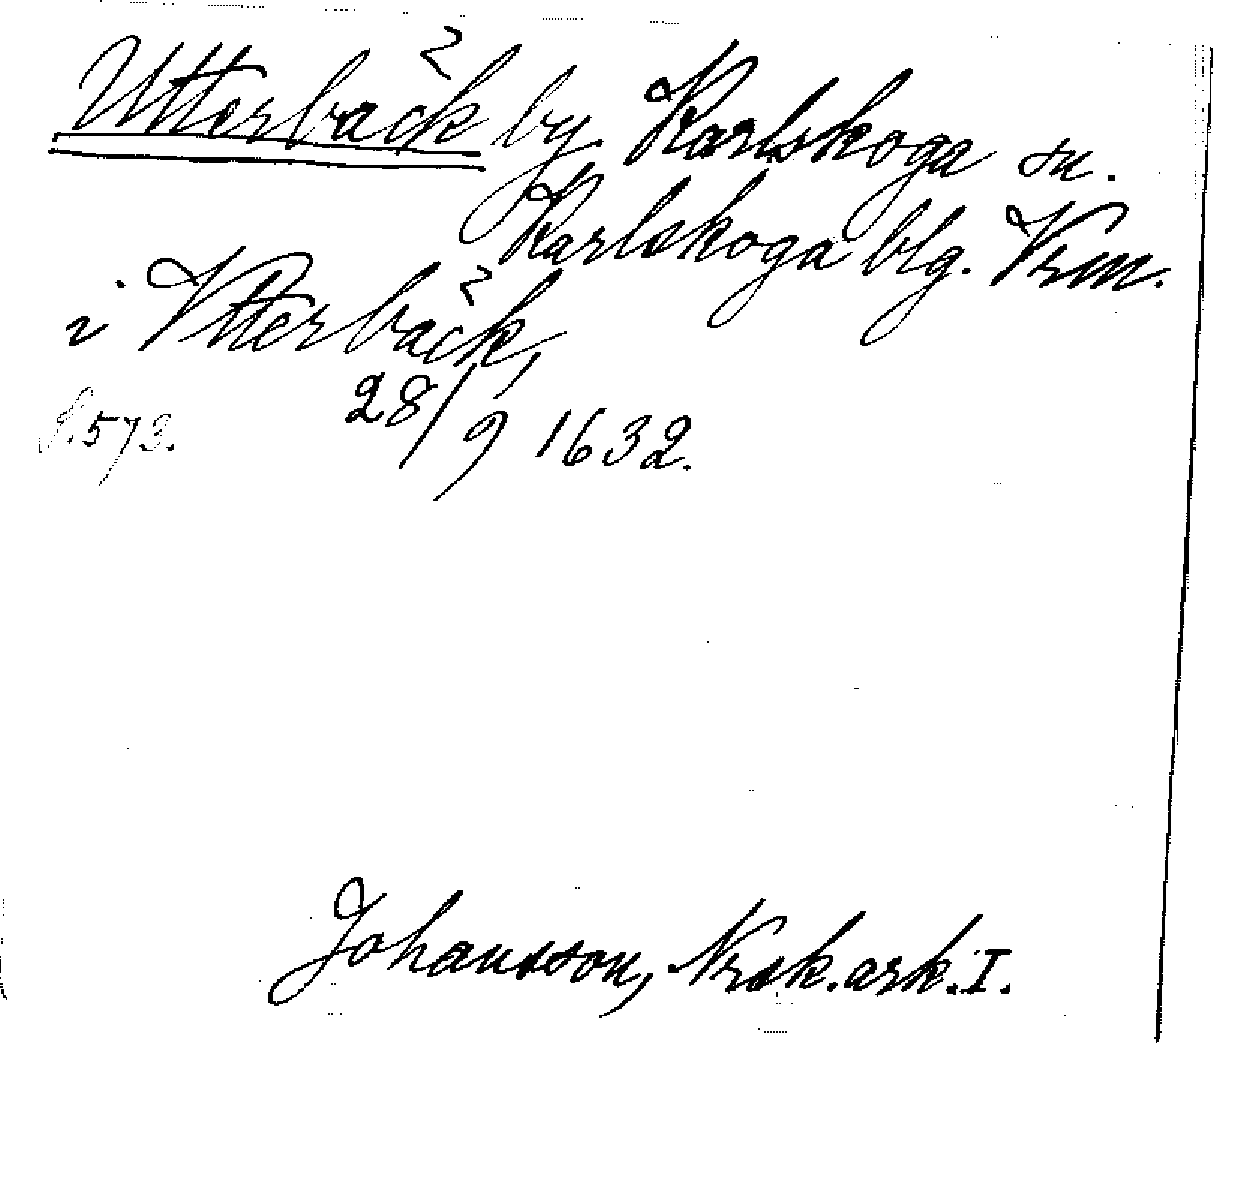 Utterbäck by Karlskoga sn.
Karlskoga blg. Vrm.
i Vtterbäck,
28/9 1632.
S. 573.
Johansson, Nrsk.ark.I.